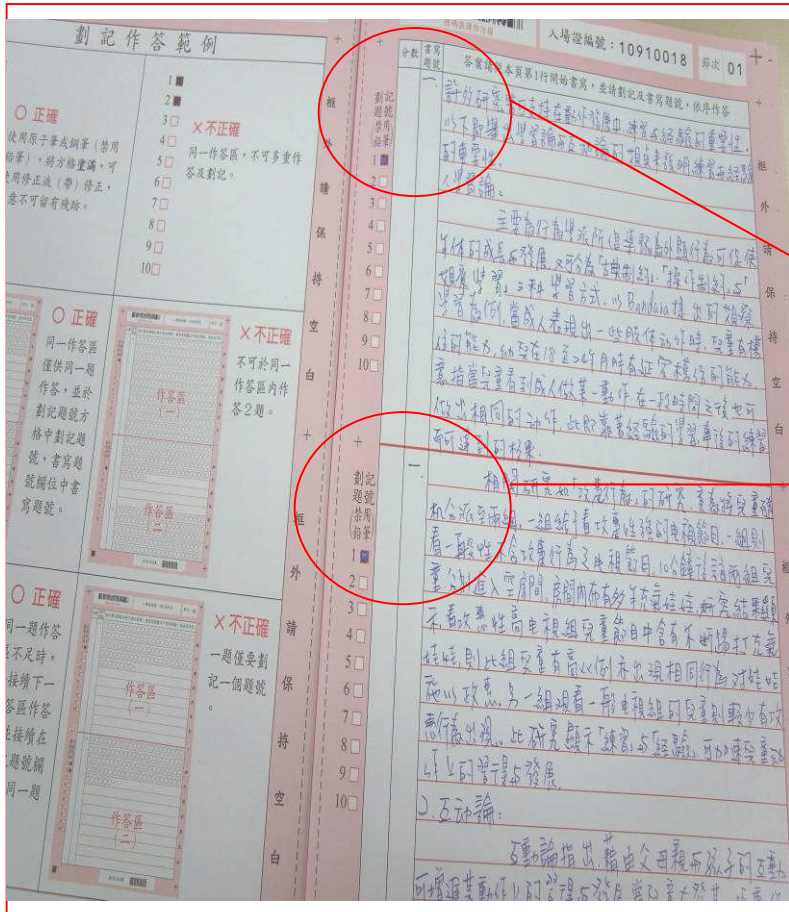 劃記作答範例
○ 正確
使用原子筆或鋼筆(禁用
鉛筆),將方格塗滿,可
使用修正液(帶)修正,
意不可留有殘跡。
1■
2■
3□
4□
5□
6□
7□
8□
9□
10□
×不正確
同一作答區,不可多重作
答及劃記。
○ 正確
同一作答區
僅供同一題
作答,並於
劃記題號方
格中劃記題
號,書寫題
號欄位中書
寫題號。
作答區
(一)
作答區
(二)
×不正確
不可於同一
作答區內作
答2題。
○ 正確
同一題作答
區不足時,
接續下一
答區作答
並接續在
題號欄
同一題
作答區
(一)
作答區
(二)
×不正確
一題僅要劃
記一個題號
。
框外請保持空白
框外請保持空白
入場證編號:10910018
節次 01
分數
書寫題號
答案請從本頁第1行開始書寫,並請劃記及書寫題號,依序作答
劃記
題號
(禁用
鉛筆)
1■
2□
3□
4□
5□
6□
7□
8□
9□
10□
一
許多研究皆支持在動作發展中,練習與經驗的重要性,
以下即舉出學習論與互動論的觀點來說明練習與經驗
的重要性。
1.學習論:
主要為行為學派所倡導,認為外顯行為可促使
個體的成長與發展,又可分為「古典制約」、「操作制約」與「
觀察學習」三種學習方式。以Bandura提出的觀察
學習為例,當成人表現出一些肢體動作時,兒童有模
仿的能力,幼兒在18至24個月時有延宕模仿的能力,
意指當兒童看到成人做某一動作,在一段時間之後也可
做出相同的動作,此即靠著經驗的學習,事後的練習
而可達到的效果。
劃記
題號
(禁用
鉛筆)
1■
2□
3□
4□
5□
6□
7□
8□
9□
10□
一
相關研究如「攻擊行為」的研究,
機分派至兩組,一組給予看攻擊性強的電視節目,一組則
看一般性不含攻擊行為之電視節目,10分鐘後該兩組兒
童分別進入空房間,房間內布有許多充氣娃娃,研究結果顯
示,看攻擊性高電視組兒童節目中含有不斷揚打充氣
娃娃,則此組兒童有高比例亦出現相同行為,對娃娃
施以攻擊。另一組觀看一般電視組的兒童則較少有攻
擊行為出現。此研究顯示「練習」與「經驗」可加速兒童動
作上的習得與發展。
2.互動論:
互動論指出,藉由父母親與孩子的互動,
可增進其動作上的習得與發展
框外請保持空白